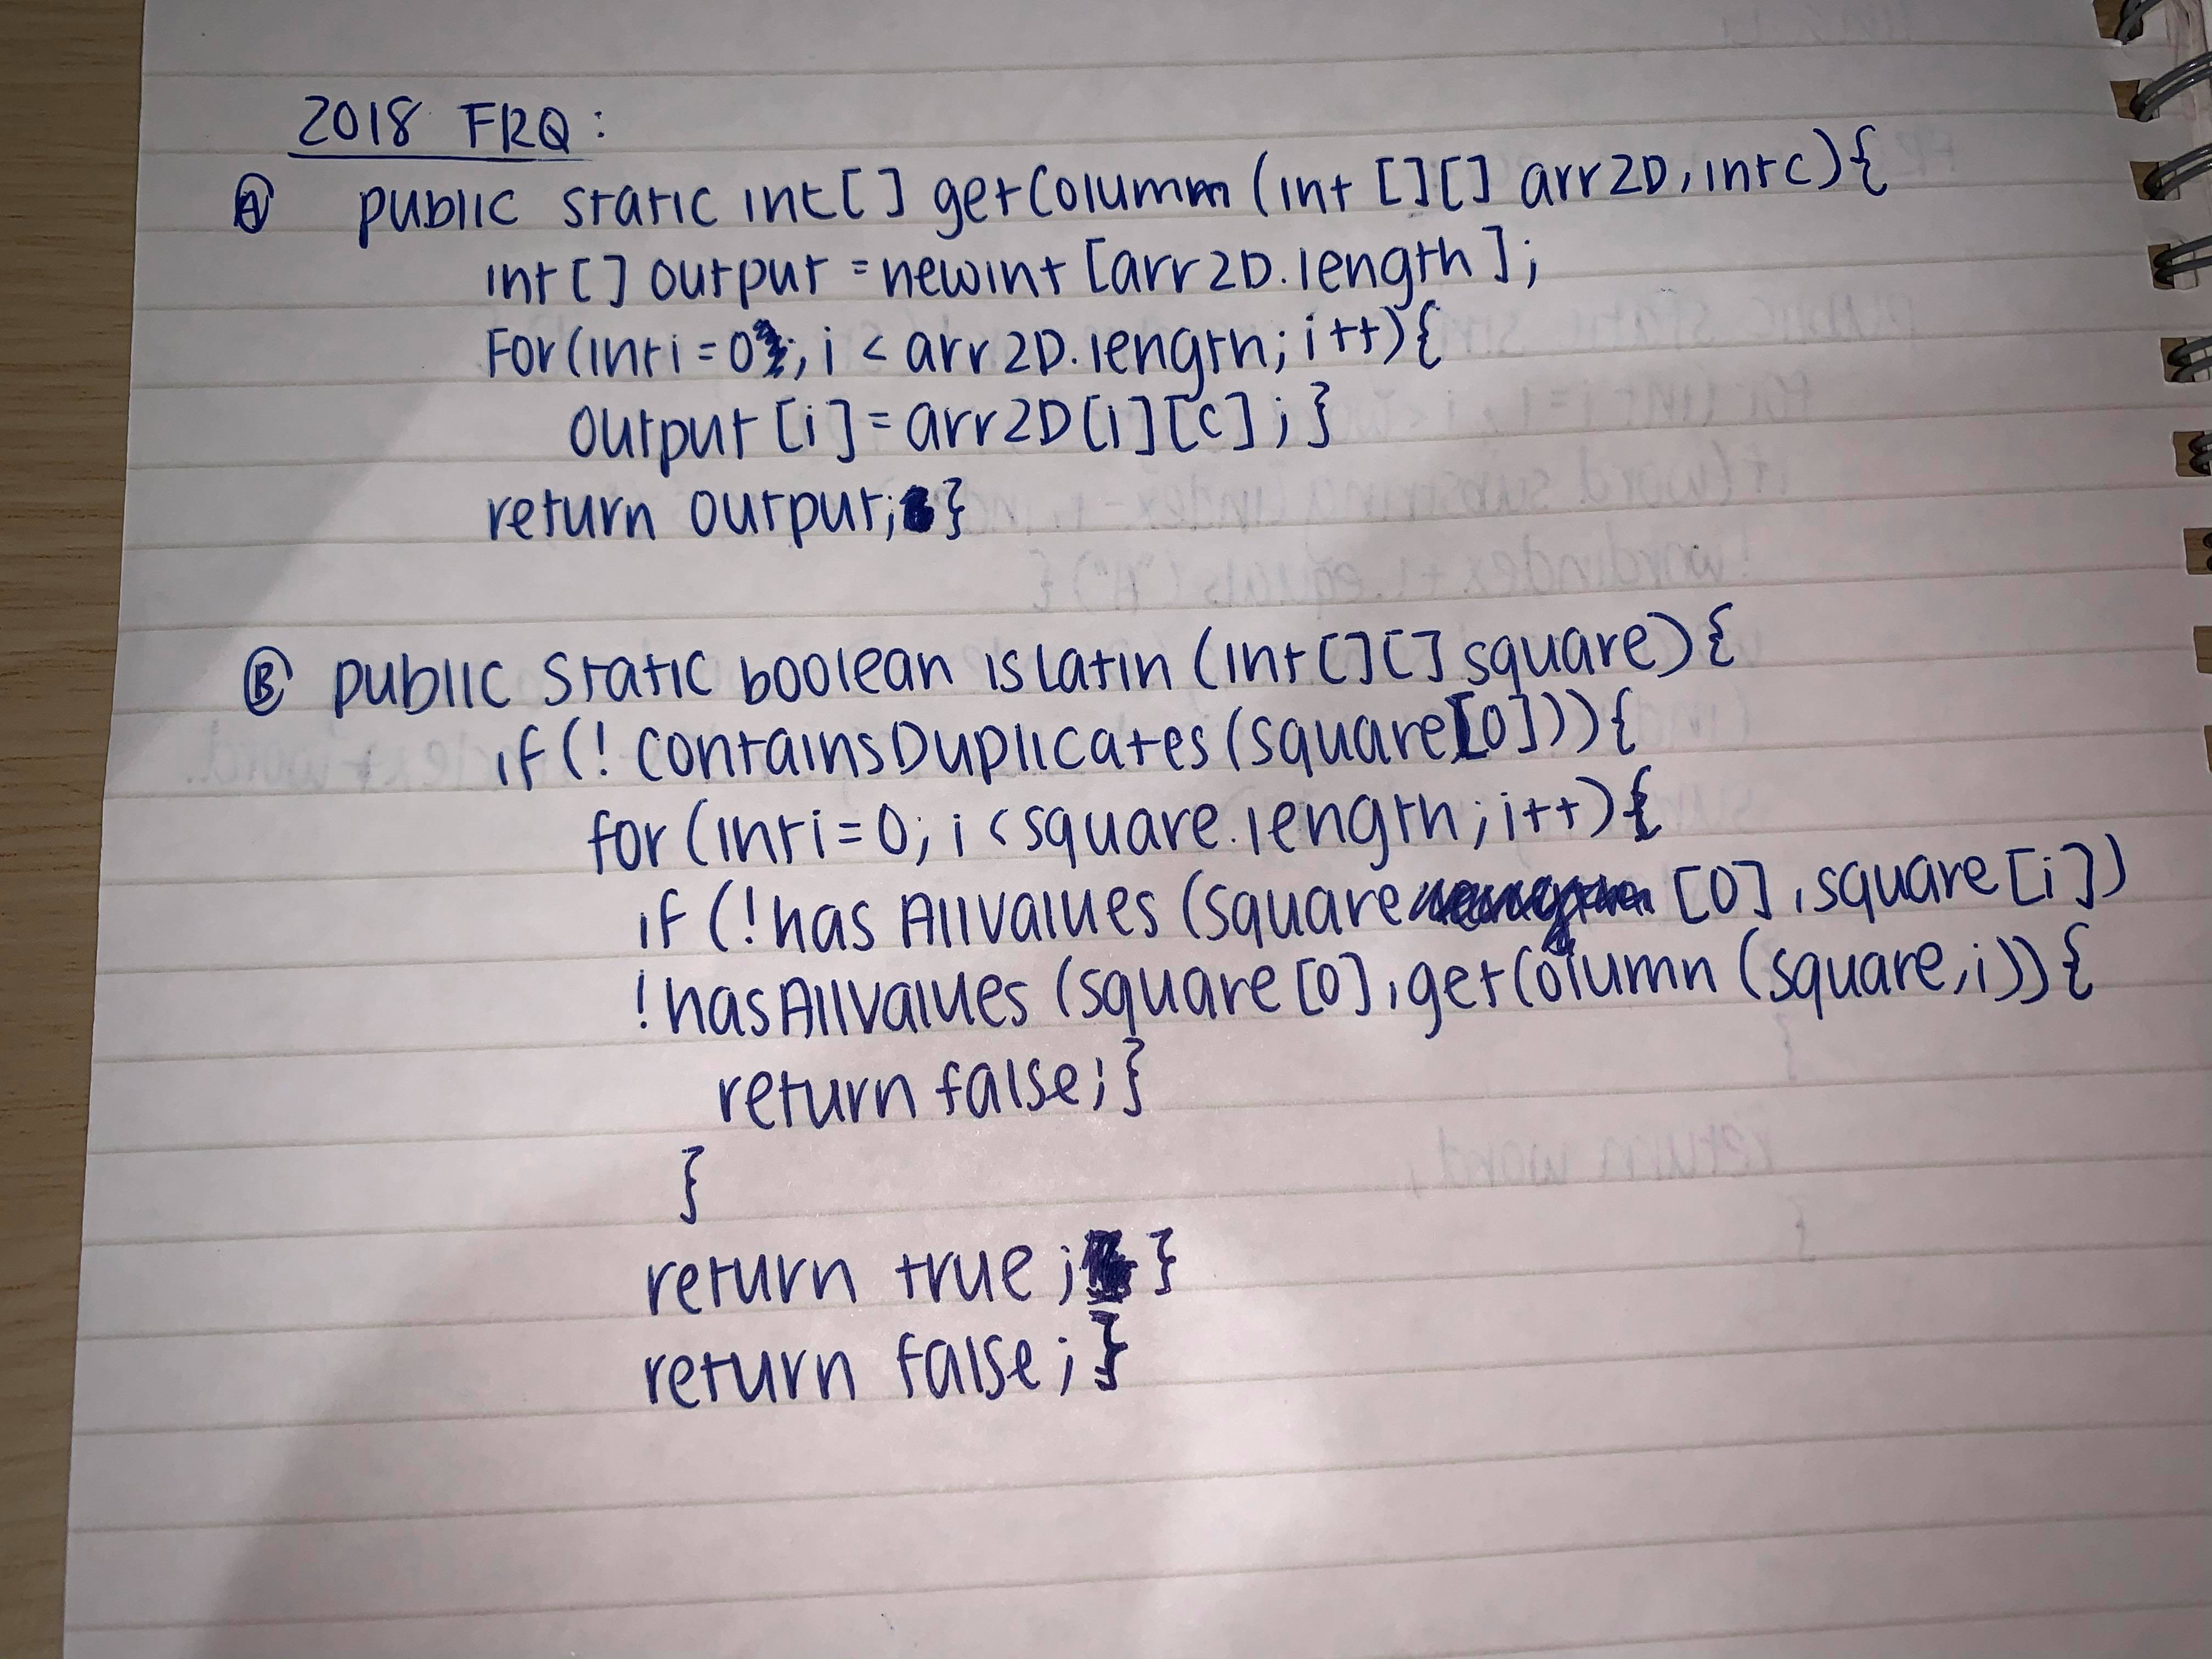 2018 FRQ:
A public static int[] getColumm (int [][] arr2D, int c){
int[] output = new int [arr2D.length];
For(int i = 0; i < arr2D.length; i++){
output [i] = arr2D[i][c]; }
return output; }
B public static boolean isLatin (int[][] square) {
if (! containsDuplicates (square[0])) {
for (int i = 0; i < square.length; i++) {
if (!has AllValues (square [0], square [i])
!hasAllValues (square [0], getColumn (square, i)) {
return false; }
}
return true; }
return false; }